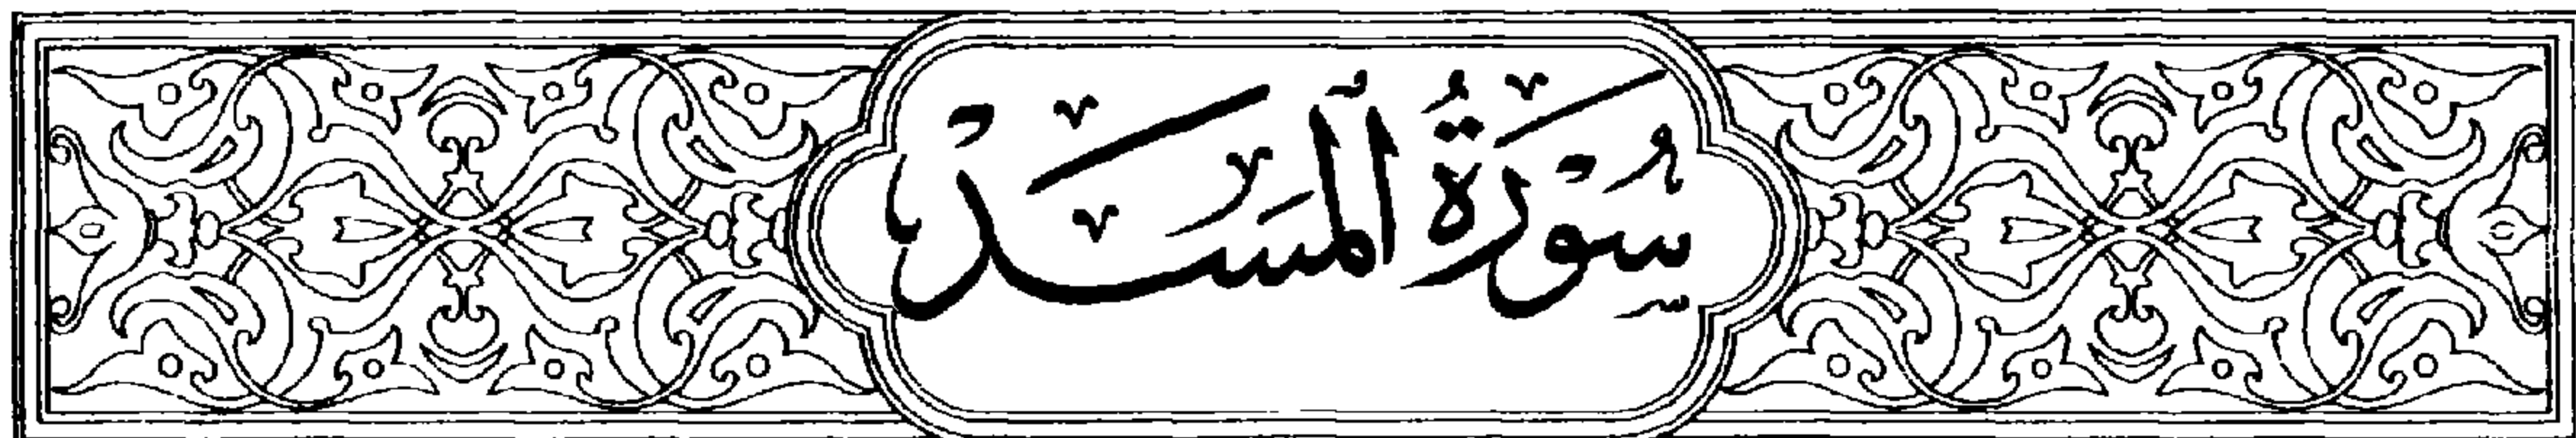 سُورَةُ الْمَسَدِ